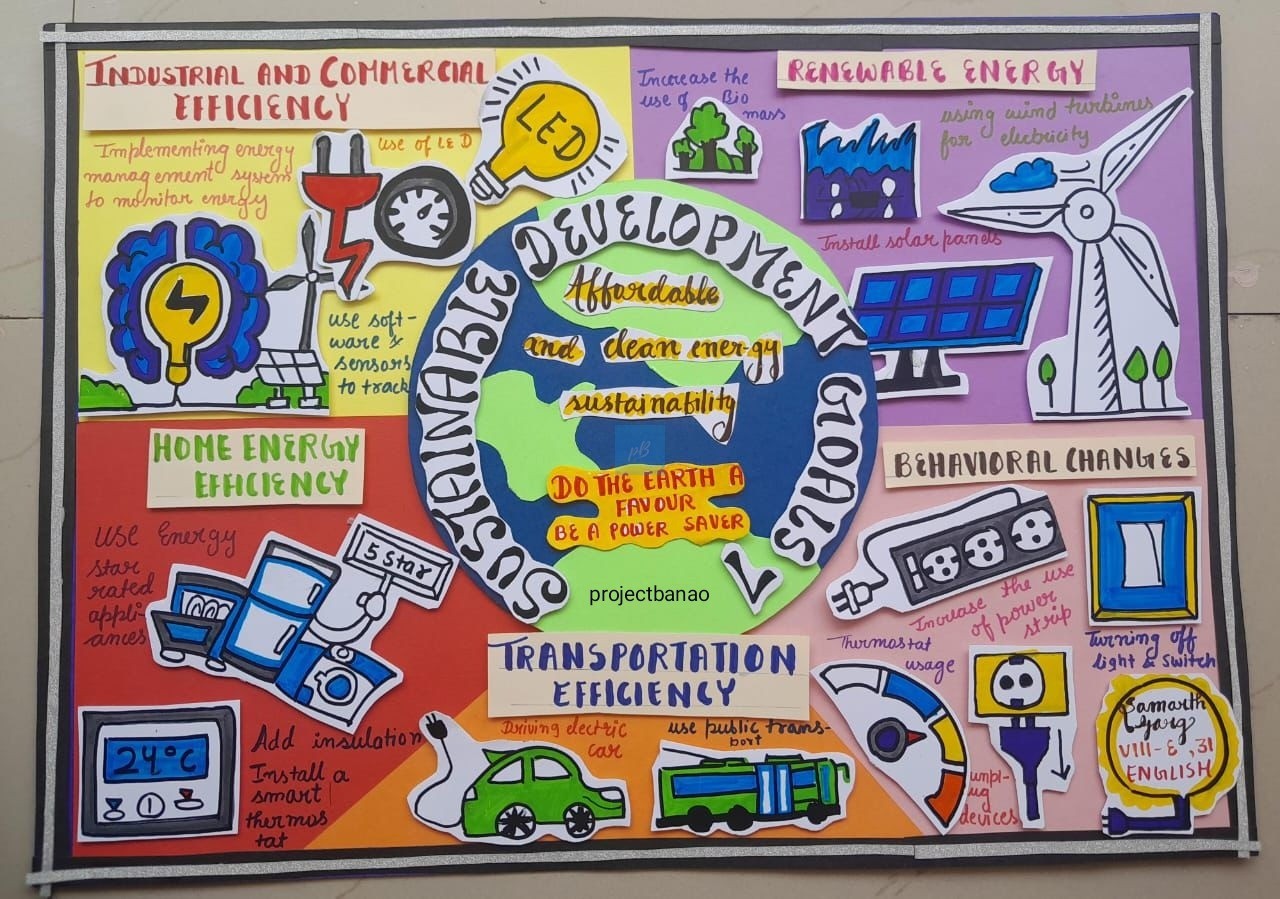 INDUSTRIAL AND COMMERCIAL
EFFICIENCY
Implementing energy
management system
to monitor energy
use of LED
LED
use soft-
ware &
sensors
to track
Increase the
use of Bio
mass
RENEWABLE ENERGY
using wind turbines
for elebtricity
Install solar panels
SUSTAINABLE DEVELOPMENT GOALS 7
Affordable
and clean energy
sustainability
pB
DO THE EARTH A
FAVOUR
BE A POWER SAVER
projectbanao
HOME ENERGY
EFFICIENCY
Use Energy
star
rated
appli-
ances
5 Star
24°C
Add insulation
Install a
smart
thermos
tat
TRANSPORTATION
EFFICIENCY
Driving electric
car
use public trans-
port
BEHAVIORAL CHANGES
Increase the use
of power
strip
Turning off
light & Switch
Thermostat
usage
unpl-
ug
devices
Samarth
Garg
VIII-E, 31
ENGLISH